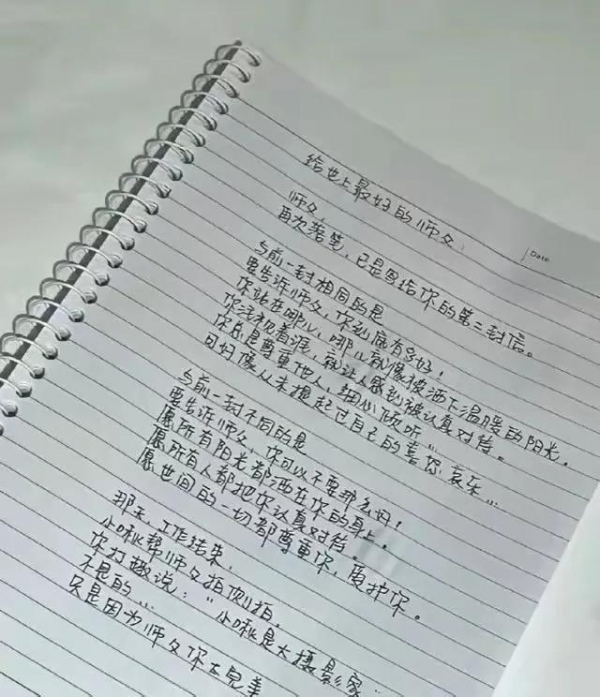 给世上最好的师父:
Date
师父,
再次落笔,已是写给你的第二封信。
与前一封相同的是
要告诉师父,你到底有多好!
你站在哪儿,哪儿就像被洒下温暖的阳光。
你注视着谁,就让人感到被认真对待。
你总是尊重他人,细心倾听...
可好像从未提起过自己的喜怒哀乐...
与前一封不同的是
要告诉师父,你可以不要那么好!
愿所有阳光都洒在你的身上。
愿所有人都把你认真对待。
愿世间的一切都尊重你,爱护你。
那天,工作结束,
小啾帮师父拍侧拍,
你打趣说:“小啾是大摄影家...
不是的...
只是因为师父你太完美